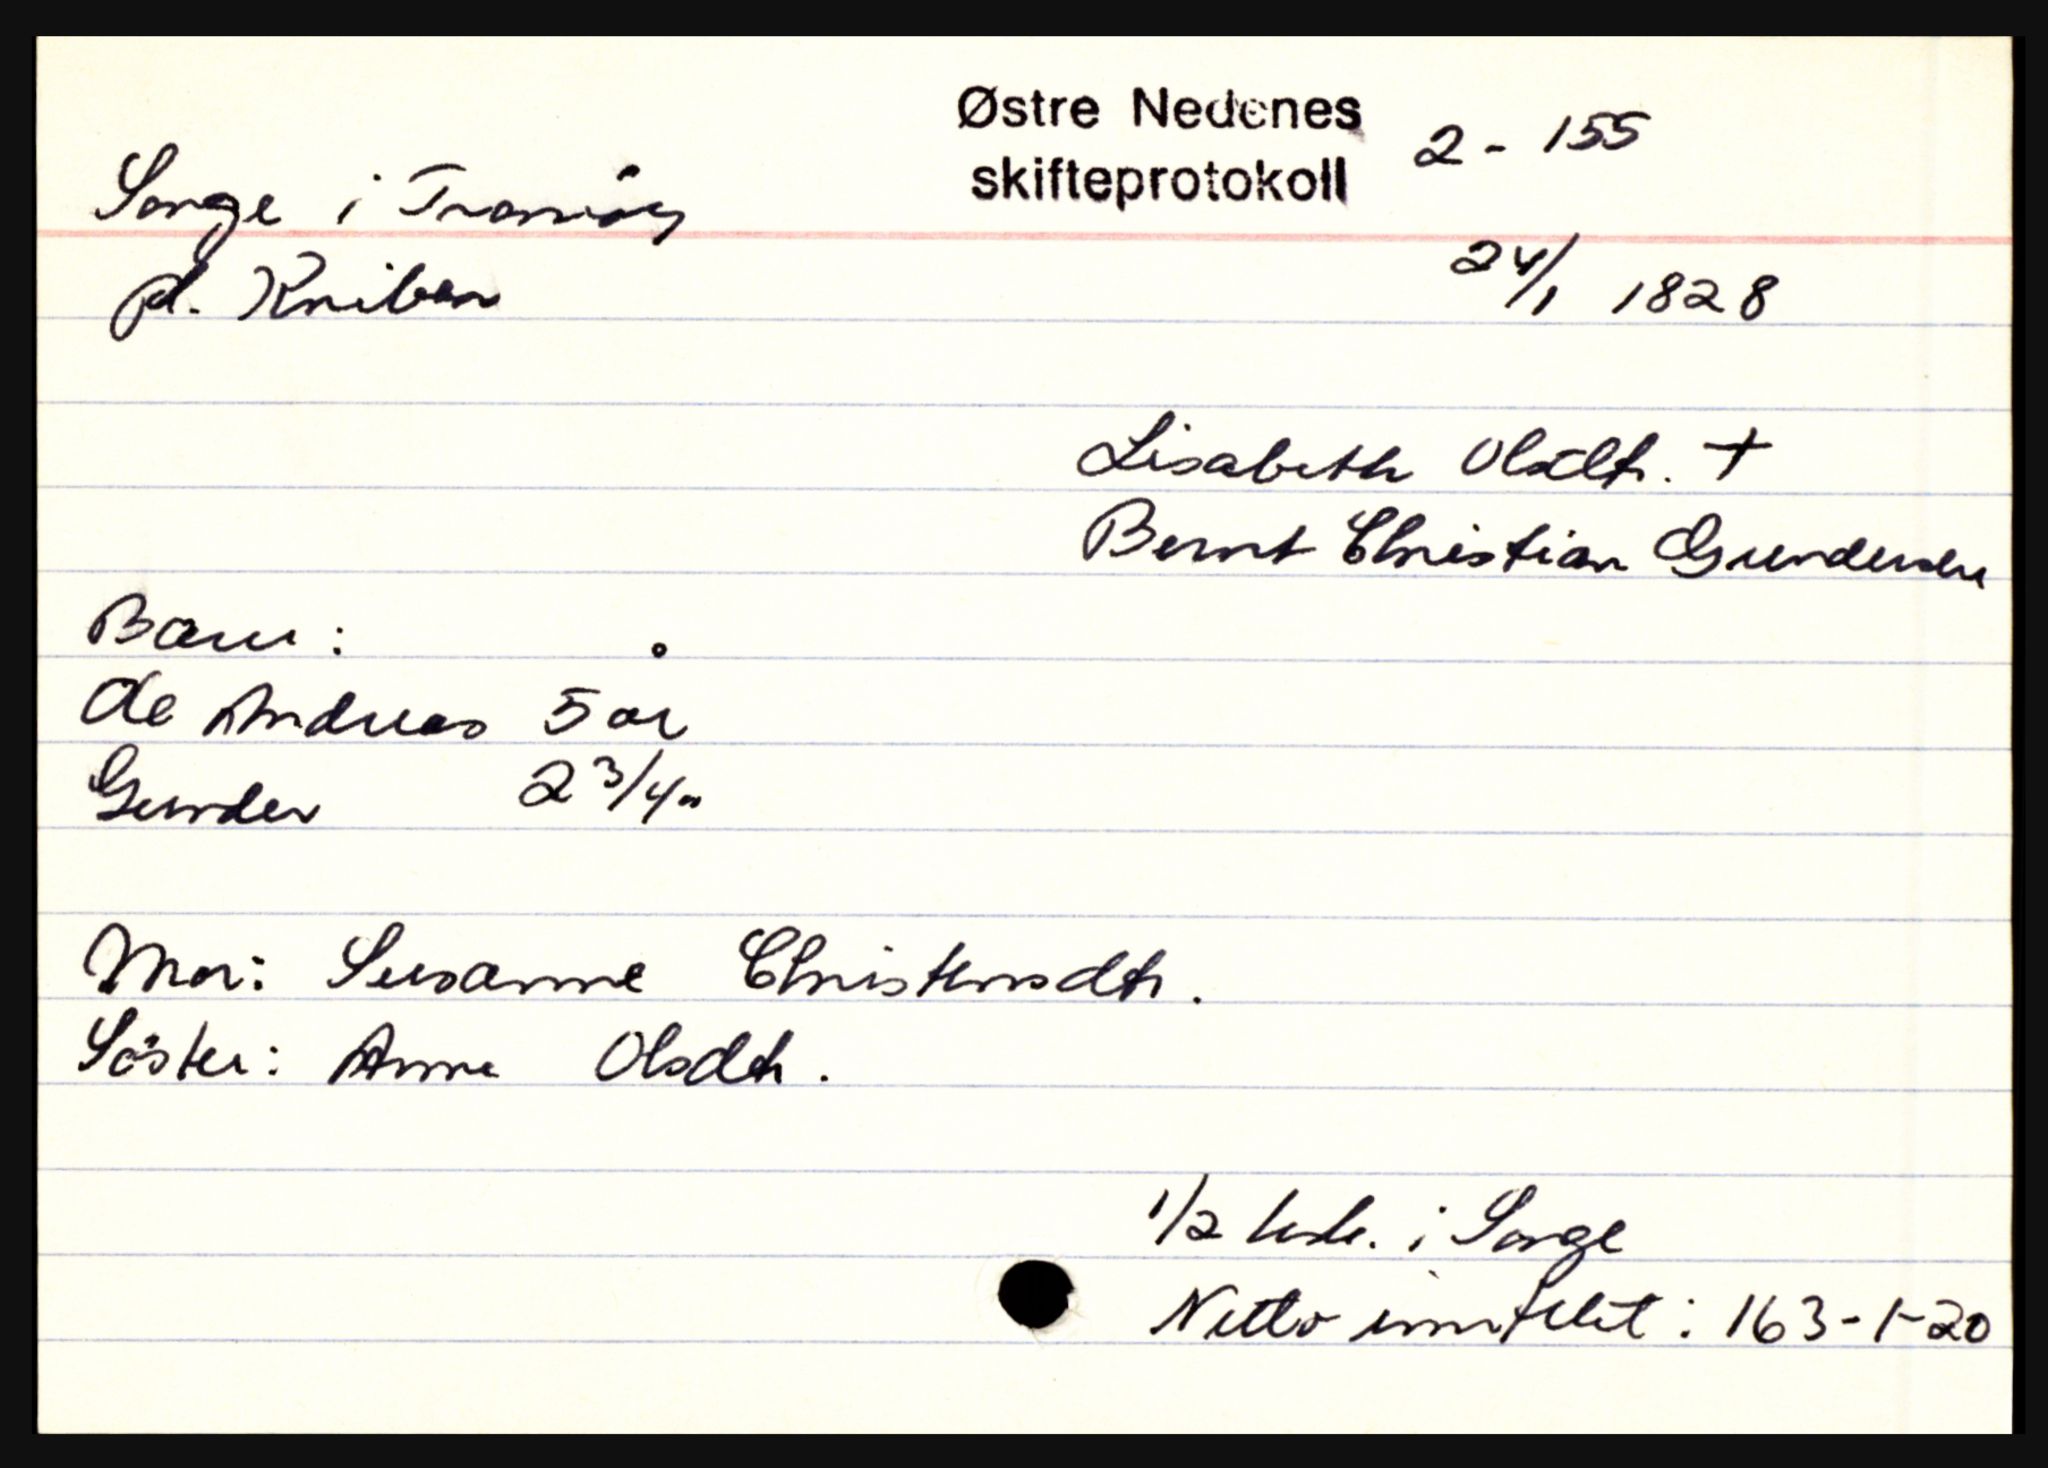 Østre Nedenes
skifteprotokoll 2-155
Songe i Tromöy
pl. Kniben
24/1 1828
Lisabeth Olsdtr. +
Bernt Christian Gundersen
Barn:
Ole Andreas 5 år
Gunder 2 3/4 "
Mor: Susanne Christensdtr.
Söster: Anne Olsdtr.
1/2 i Songe
Netto innfelt: 163-1-20